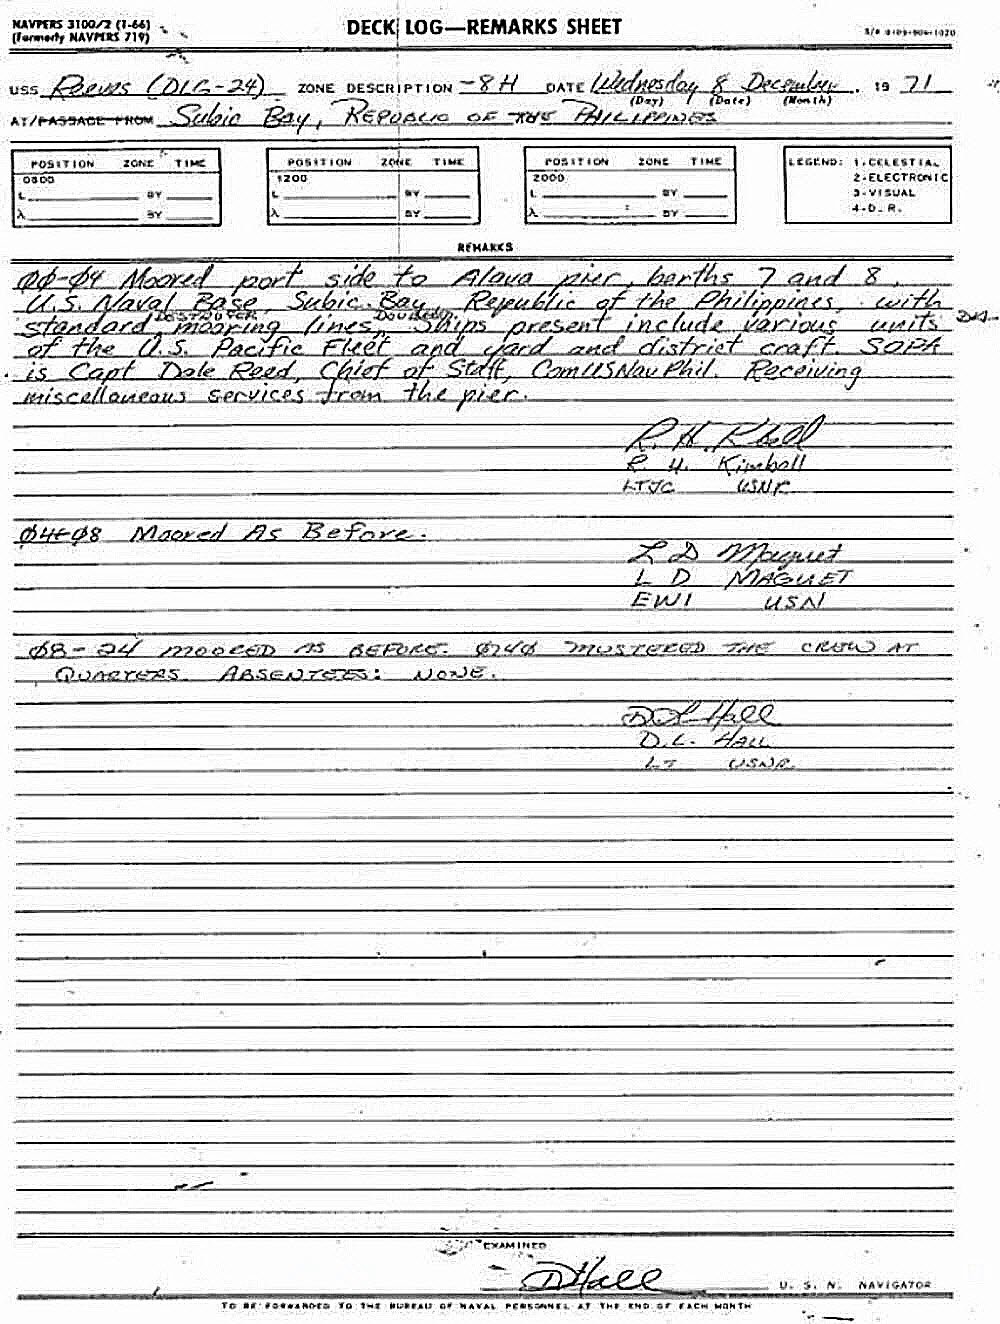 NAVPERS 3100/2 (1-66)
(Formerly NAVPERS 719)
DECK LOG—REMARKS SHEET
USS Reeves (DLG-24) ZONE DESCRIPTION -8H DATE Wednesday 8 December, 19 71
(Day) (Date) (Month)
AT/PASSAGE FROM Subic Bay, REPUBLIC OF THE PHILIPPINES
POSITION ZONE TIME
0800
L BY
λ BY
POSITION ZONE TIME
1200
L BY
λ BY
POSITION ZONE TIME
2000
L BY
λ BY
LEGEND: 1-CELESTIAL
2-ELECTRONIC
3-VISUAL
4-D.R.
REMARKS
ØØ-Ø4 Moored port side to Alava pier, berths 7 and 8,
U.S. Naval Base, Subic Bay, Republic of the Philippines, with
DESTROYER DOUBLED
standard mooring lines. Ships present include various units
of the U.S. Pacific Fleet and yard and district craft. SOPA
is Capt Dale Reed, Chief of Staff, ComUSNavPhil. Receiving
miscellaneous services from the pier.
R. H. Kimball
LTJG USNR
Ø4-Ø8 Moored As Before.
L D Maguet
L D MAGUET
EW1 USN
Ø8-24 MOORED AS BEFORE. Ø74Ø MUSTERED THE CREW AT
QUARTERS. ABSENTEES: NONE.
D L Hall
D.L. HALL
LT USNR
EXAMINED
D Hall U. S. N. NAVIGATOR
TO BE FORWARDED TO THE BUREAU OF NAVAL PERSONNEL AT THE END OF EACH MONTH